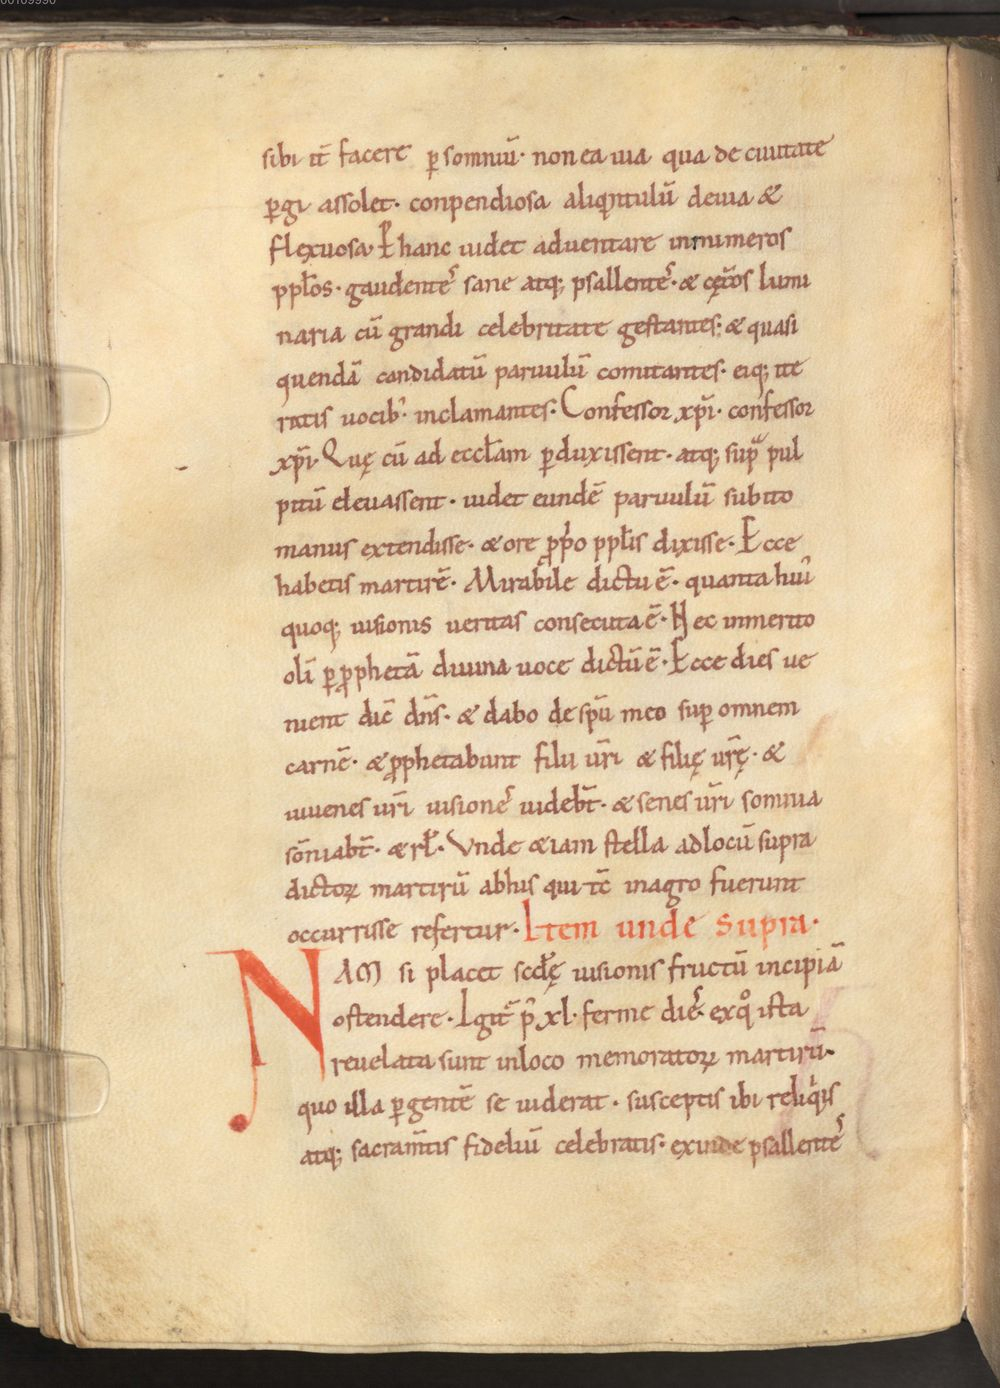 00109990
sibi it̄ facere ꝑ somniū· non ea uia qua de ciuitate
ꝑgi assolet· conpendiosa aliqͣntulū deuia &
flexuosa· Ꝑ hanc uidet aduentare innumeros
ppl̄os· gaudentēs sane atq; psallentēs· & cęr̄os lumi
naria cū grandi celebritate gestantes; & quasi
quendā candidatū paruulū comitantes· eiq; ite
ratis uocibꝰ inclamantes· Confessor xp̄i· confessor
xp̄i· Quę cū ad eccl̄am ꝑduxissent· atq; supͣ pul
pitū eleuassent· uidet eundē paruulū subito
manus extendisse· & ore ꝓpͥo ppl̄is dixisse· Ecce
habetis martirē· Mirabile dictu ē· quanta huiꝰ
quoq; uisionis ueritas consecuta ē· Nec inmerito
oli᷄ ꝑ ꝓphetā diuina uoce dictū ē· Ecce dies ue
nient dic̄ dn̄s· & dabo de sp̄u meo suꝑ omnem
carnē· & ꝓphetabunt filii ur̄i & filię ur̄ę· &
iuuenes ur̄i uisionēs uideb̄t· & senes ur̄i somnia
sōniab̄t· & rl̄· Vnde &iam stella ad locū supra
dictoꝝ martirū ab his qui tc̄ in agro fuerunt
occurrisse refertur· Item unde supra·
NAM si placet scd̄ę uisionis fructū incipiā
ostendere· Igit᷑ pꝰ xl· ferme diēs exqͦ ista
reuelata sunt in loco memoratoꝝ martirū·
quo illa ꝑgentē se uiderat· susceptis ibi reliqͥis
atq; sacram̄tis fideliū celebratis· exinde psallentēs